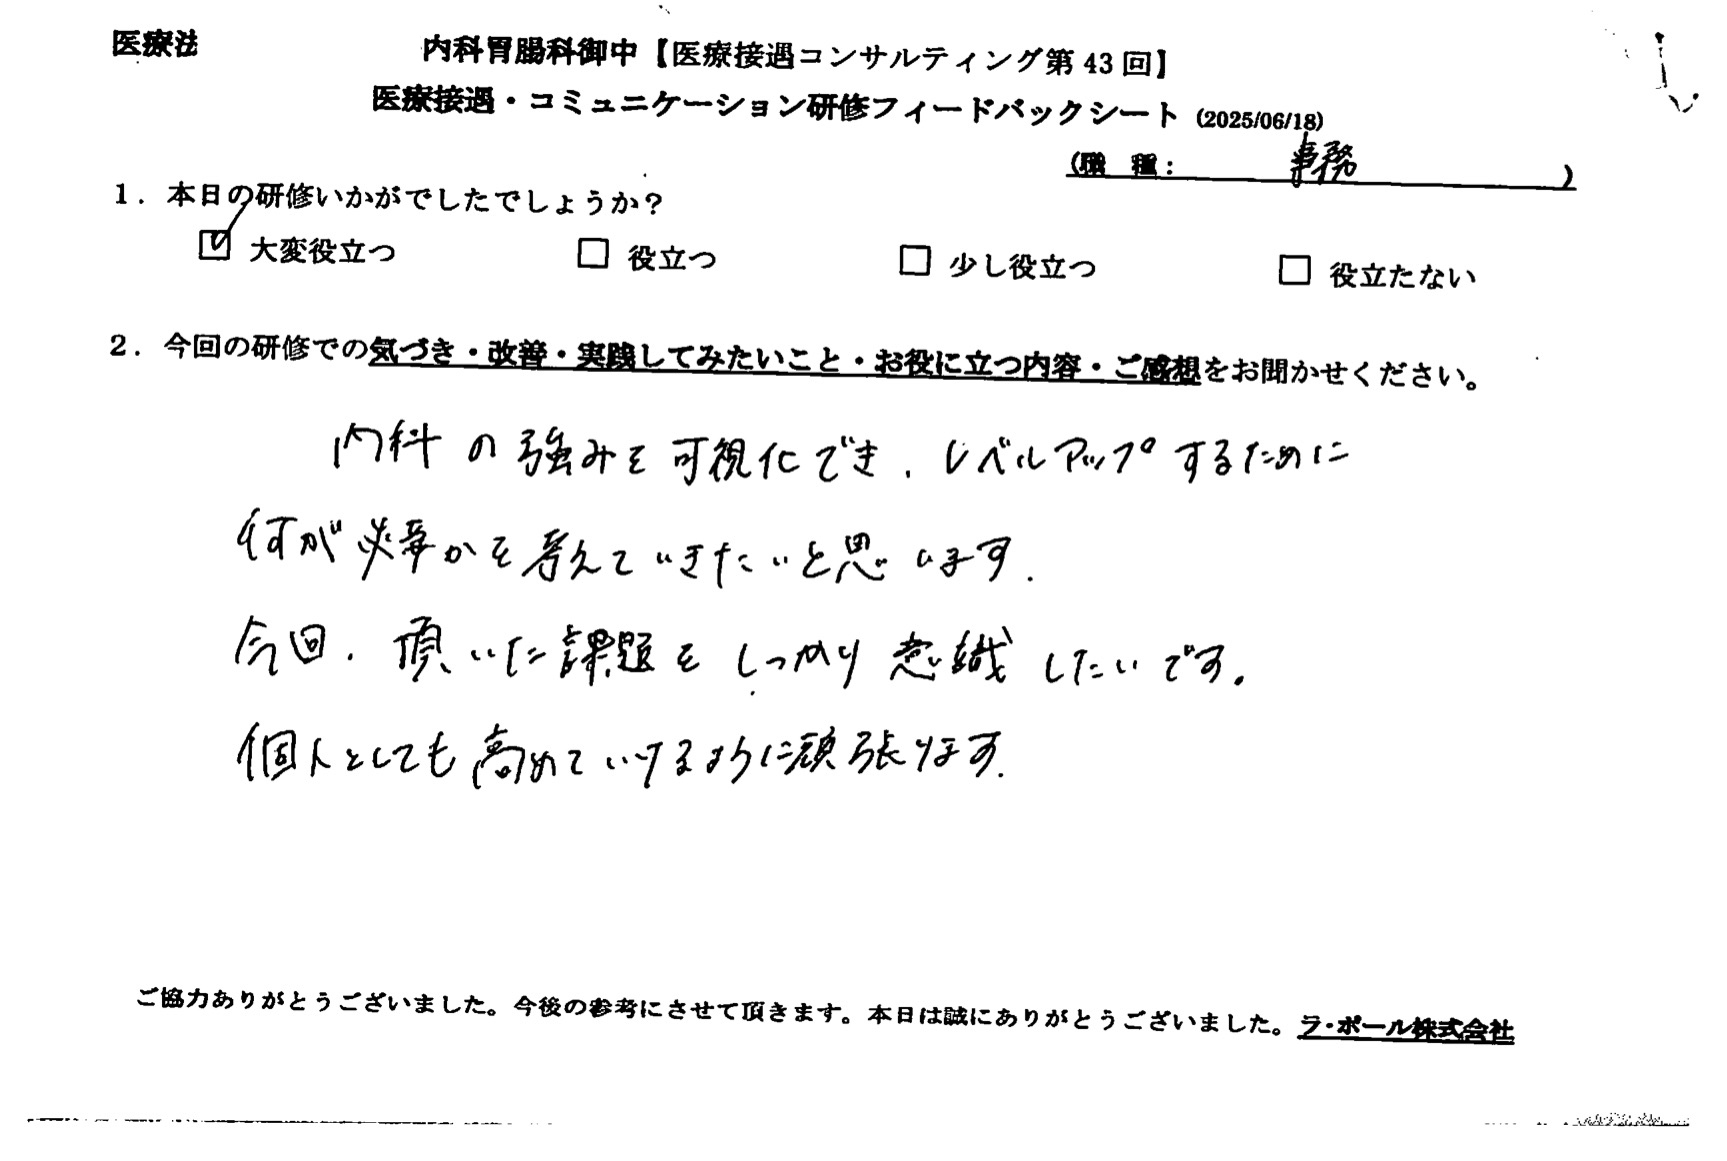 医療法
内科胃腸科御中【医療接遇コンサルティング第 43 回】
医療接遇・コミュニケーション研修フィードバックシート (2025/06/18)
(職 種： 事務 )
1．本日の研修いかがでしたでしょうか？
☑ 大変役立つ □ 役立つ □ 少し役立つ □ 役立たない
2．今回の研修での気づき・改善・実践してみたいこと・お役に立つ内容・ご感想をお聞かせください。
内科の強みを可視化でき、レベルアップするために
何が必要かを考えていきたいと思います．
今回、頂いた課題をしっかり意識したいです。
個人としても高めていけるように頑張ります．
ご協力ありがとうございました。今後の参考にさせて頂きます。本日は誠にありがとうございました。ラ・ポール株式会社